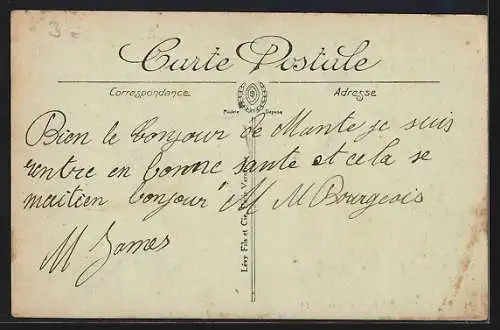 3-
Carte Postale
Correspondance Adresse
Modèle Déposé
Bien le bonjour de Mante je suis
rentre en bonne sante et cela se
maitien bonjour M M Bourgeois
M James
Lévy Fils et Cie